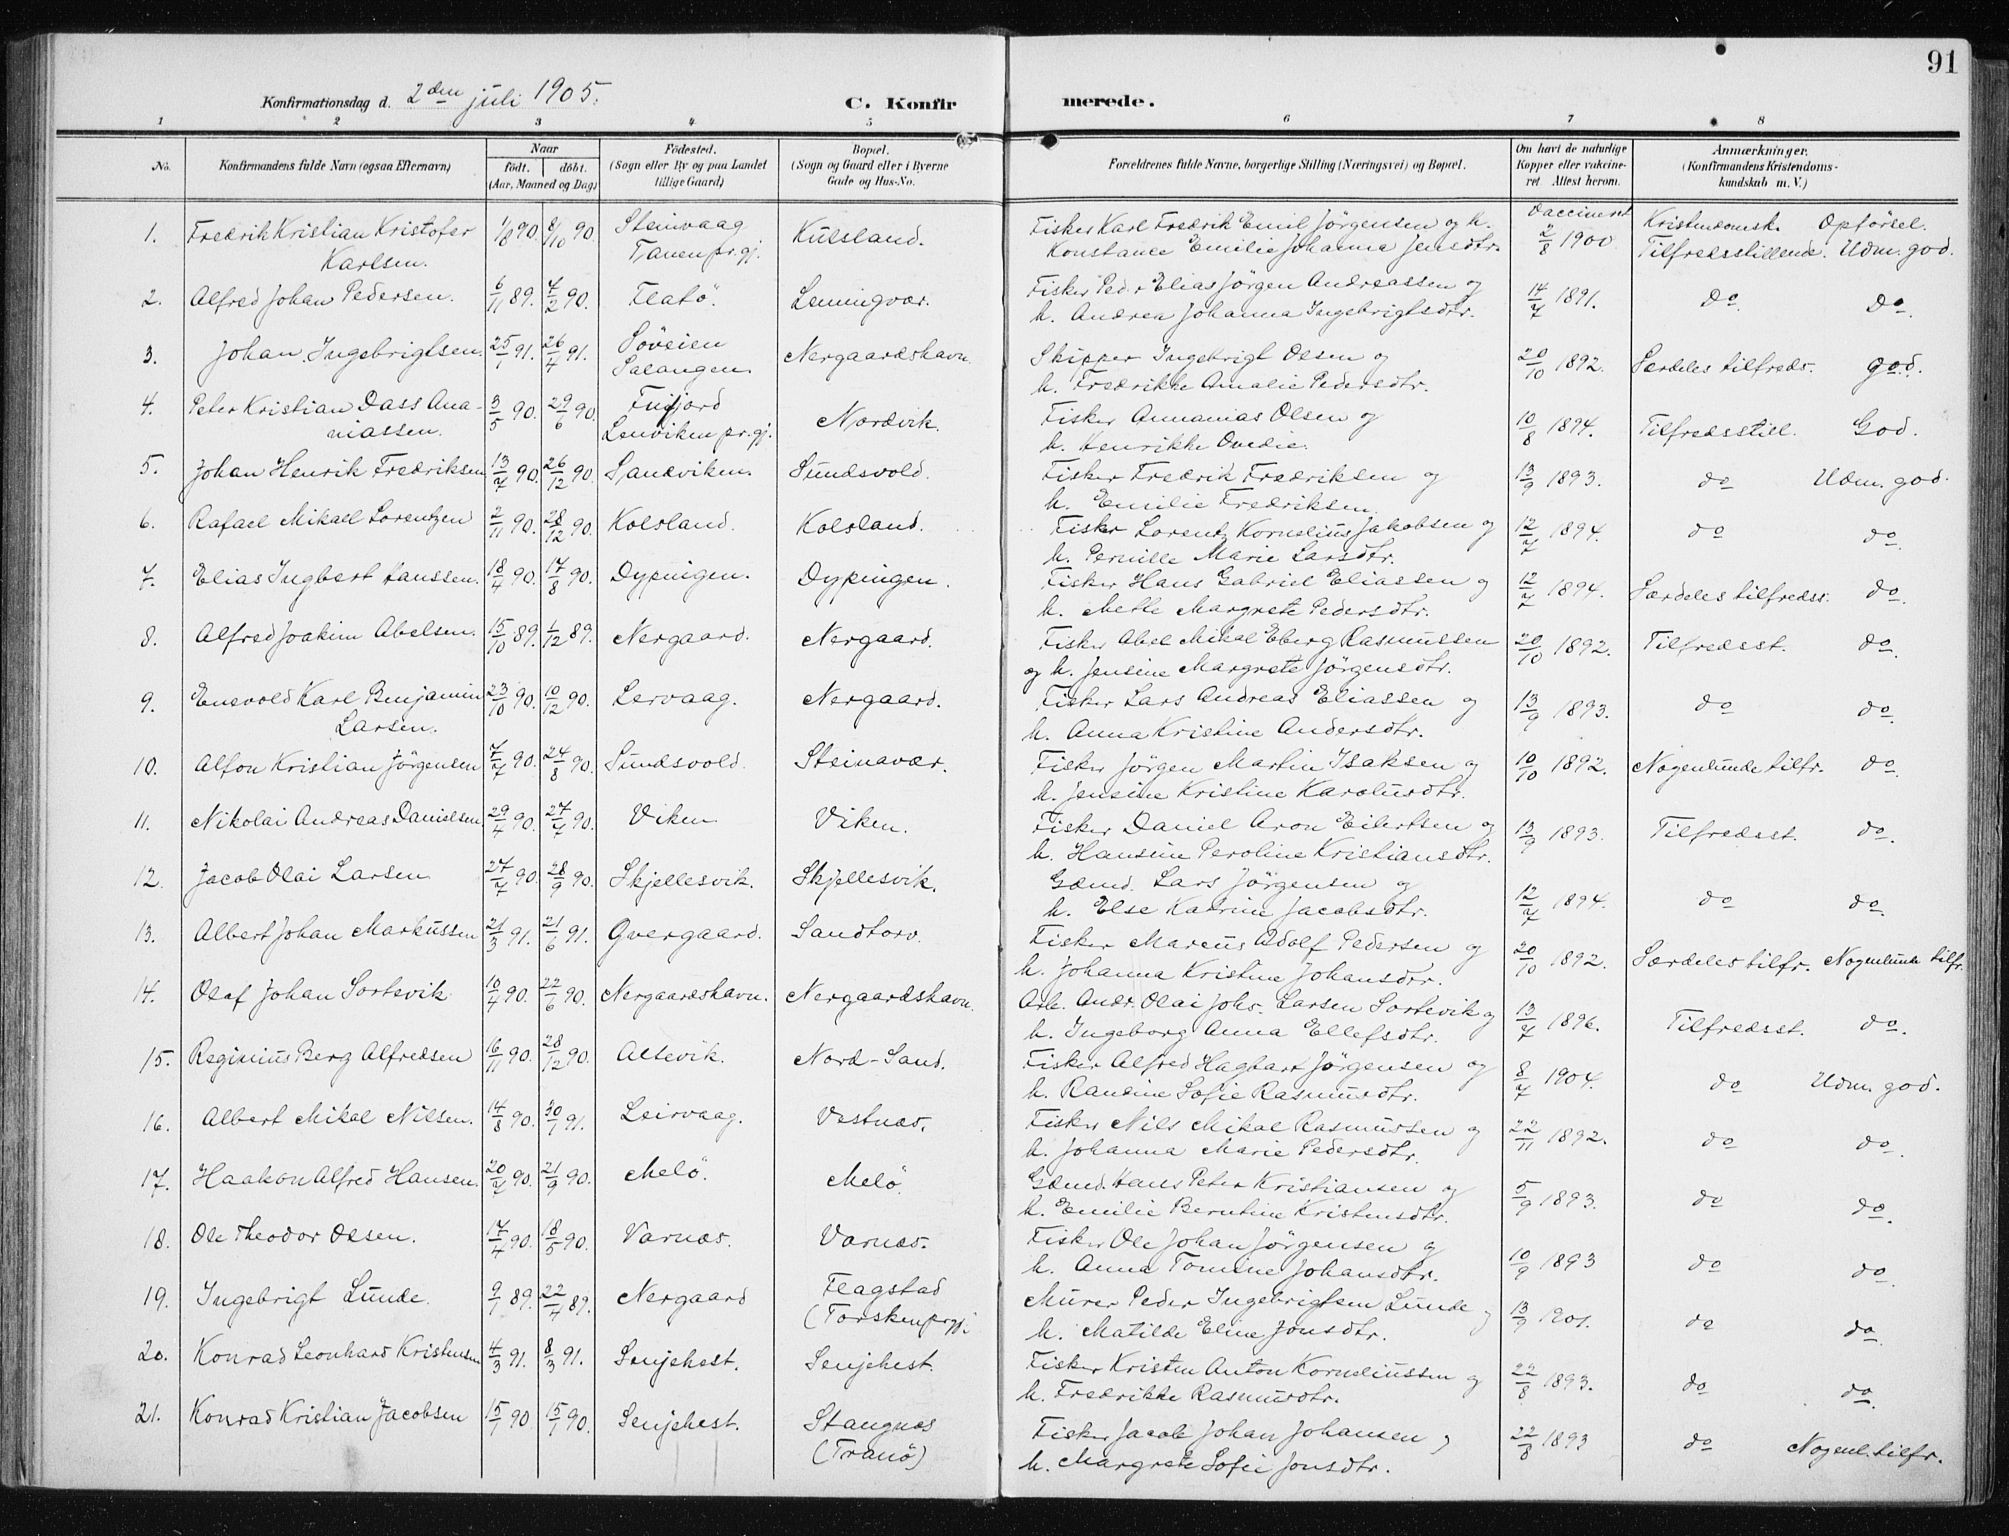 91
Konfirmationsdag d. 2den juli 1905.
C. Konfirmerede.
1 2 3 4 5 6 7 8
No. Konfirmandens fulde Navn (ogsaa Efternavn) Naar født. døbt. (Aar, Maaned og Dag) Fødested. (Sogn eller By og paa Landet tillige Gaard) Bopæl. (Sogn og Gaard eller i Byerne Gade og Hus-No. Forældrenes fulde Navne, borgerlige Stilling (Næringsvei) og Bopæl. Om havt de naturlige Kopper eller vakcineret. Attest herom. Anmærkninger. (Konfirmandens Kristendomskundskab m. V.)
1. Fredrik Kristian Kristofer Karlsen. 1/8 90. 8/10 90. Steinvaag Tranen pr.gj. Kulsland. Fisker Karl Fredrik Emil Jörgensen og h. Konstance Emilie Johanna Jensdtr. Vaccineret 2/8 1900 Kristendomsk. Tilfredsstillende. Opførsel. Udm. god.
2. Alfred Johan Pedersen. 6/11 89. 4/2 90. Flatö. Lemingvær. Fisker Peder Elias Jörgen Andreassen og h. Andrea Johanna Ingebrigtsdtr. 14/7 1891. do. do.
3. Johan Ingebrigtsen. 25/1 91. 26/4 91. Söveien Salangen. Nergaardshavn. Skipper Ingebrigt Olsen og h. Fredrikke Amalie Pedersdtr. 20/10 1892. Særdeles tilfreds. god.
4. Peter Kristian Dass Ananiassen. 3/5 90. 29/6 90. Finfjord Lenviken pr.gj. Nordvik. Fisker Annanias Olsen og h. Henrikke Ovedie. 10/8 1894. Tilfredsstill. God.
5. Johan Henrik Fredriksen 13/7 90. 26/12 90. Sandviken. Sundsvold. Fisker Fredrik Fredriksen og h. Emilie Fredriksen. 13/9 1893. do Udm. god.
6. Rafael Mikael Lorentzen 2/11 90. 28/12 90. Kolsland. Kolsland. Fisker Lorentz Kornelius Jakobsen og h. Pernille Marie Larsdtr. 12/7 1894. do do.
7. Elias Ingbert Hanssen. 18/4 90. 17/8 90. Dypingen. Dypingen. Fisker Hans Gabriel Eliassen og h. Mette Margrete Pedersdtr. 12/7 1894. Særdeles tilfredss. do.
8. Alfred Joakim Abelsen. 15/10 89. 1/12 89. Nergaard. Nergaard. Fisker Abel Mikal Eberg Rasmussen og h. Jensine Margrete Jörgensdtr. 20/10 1892. Tilfredsst. do.
9. Enevold Karl Benjamin Larsen. 23/10 90. 10/12 90. Lervaag. Nergaard. Fisker Lars Andreas Eliassen og h. Anna Kristine Andersdtr. 13/9 1893. do do.
10. Alfon Kristian Jörgensen 7/7 90. 24/8 90. Sundsvold. Steinavær. Fisker Jörgen Martin Isaksen og h. Jensine Kristine Karolusdtr. 10/10 1892. Nogenlunde tilfr. do.
11. Nikolai Andreas Danielsen. 29/4 90. 27/7 90. Viken Viken. Fisker Daniel Aron Eilertsen og h. Hansine Peroline Kristiansdtr. 13/9 1893. Tilfredsst. do.
12. Jacob Olai Larsen 27/7 90. 28/9 90. Skjellesvik. Skjellesvik. Gæmd. Lars Jörgensen og h. Else Katrine Jacobsdtr. 12/7 1894. do do.
13. Albert Johan Markussen 21/3 91. 21/6 91. Overgaard. Sandtorv. Fisker Marcus Adolf Pedersen og h. Johanna Kristine Johansdtr. 20/10 1892. Særdeles tilfr. Nogenlunde tilfr.
14. Olaf Johan Sortevik 10/4 90. 22/6 90. Nergaardshavn. Nergaardshavn. Arb. Andr. Olai Johs. Larsen Sortevik og h. Ingeborg Anna Ellefsdtr. 13/7 1896. Tilfredsst. do.
15. Reginius Berg Alfredsen 16/11 90. 28/12 90. Altevik. Nord-Sand. Fisker Alfred Hagbart Jörgensen og h. Randine Sofie Rasmusdtr. 8/7 1904. do Udm. god.
16. Albert Mikal Nilsen. 14/8 90. 30/1 91. Leirvaag. Vestnæs. Fisker Nils Mikal Rasmussen og h. Johanna Marie Pedersdtr. 22/11 1892. do do.
17. Haakon Alfred Hansen. 20/7 90. 21/9 90. Melö. Melö. Gæmd. Hans Peter Kristiansen og h. Emilie Berntine Kristensdtr. 5/9 1893. do do.
18. Ole Theodor Olsen. 17/4 90. 18/5 90. Varnæs. Varnæs. Fisker Ole Johan Jörgensen og h. Anna Tomine Johansdtr. 10/9 1893 do do.
19. Ingebrigt Lunde. 9/1 89. 22/4 89. Nergaard Flagstad (Torsken prgj. Murer Peder Ingebrigtsen Lunde og h. Matilde Eline Jonsdtr. 13/9 1901. do do.
20. Konrad Leonhard Kristensen 4/3 91. 8/3 91. Senjehest. Senjehest. Fisker Kristen Anton Korneliussen og h. Fredrikke Rasmusdtr. 22/8 1893. do do.
21. Konrad Kristian Jacobsen 15/1 90 15/1 90. Senjehest. Stangnæs (Tranö) Fisker Jacob Johan Johansen og h. Margrete Sofie Jonsdtr. 22/8 1893 do Nogenl. tilfr.